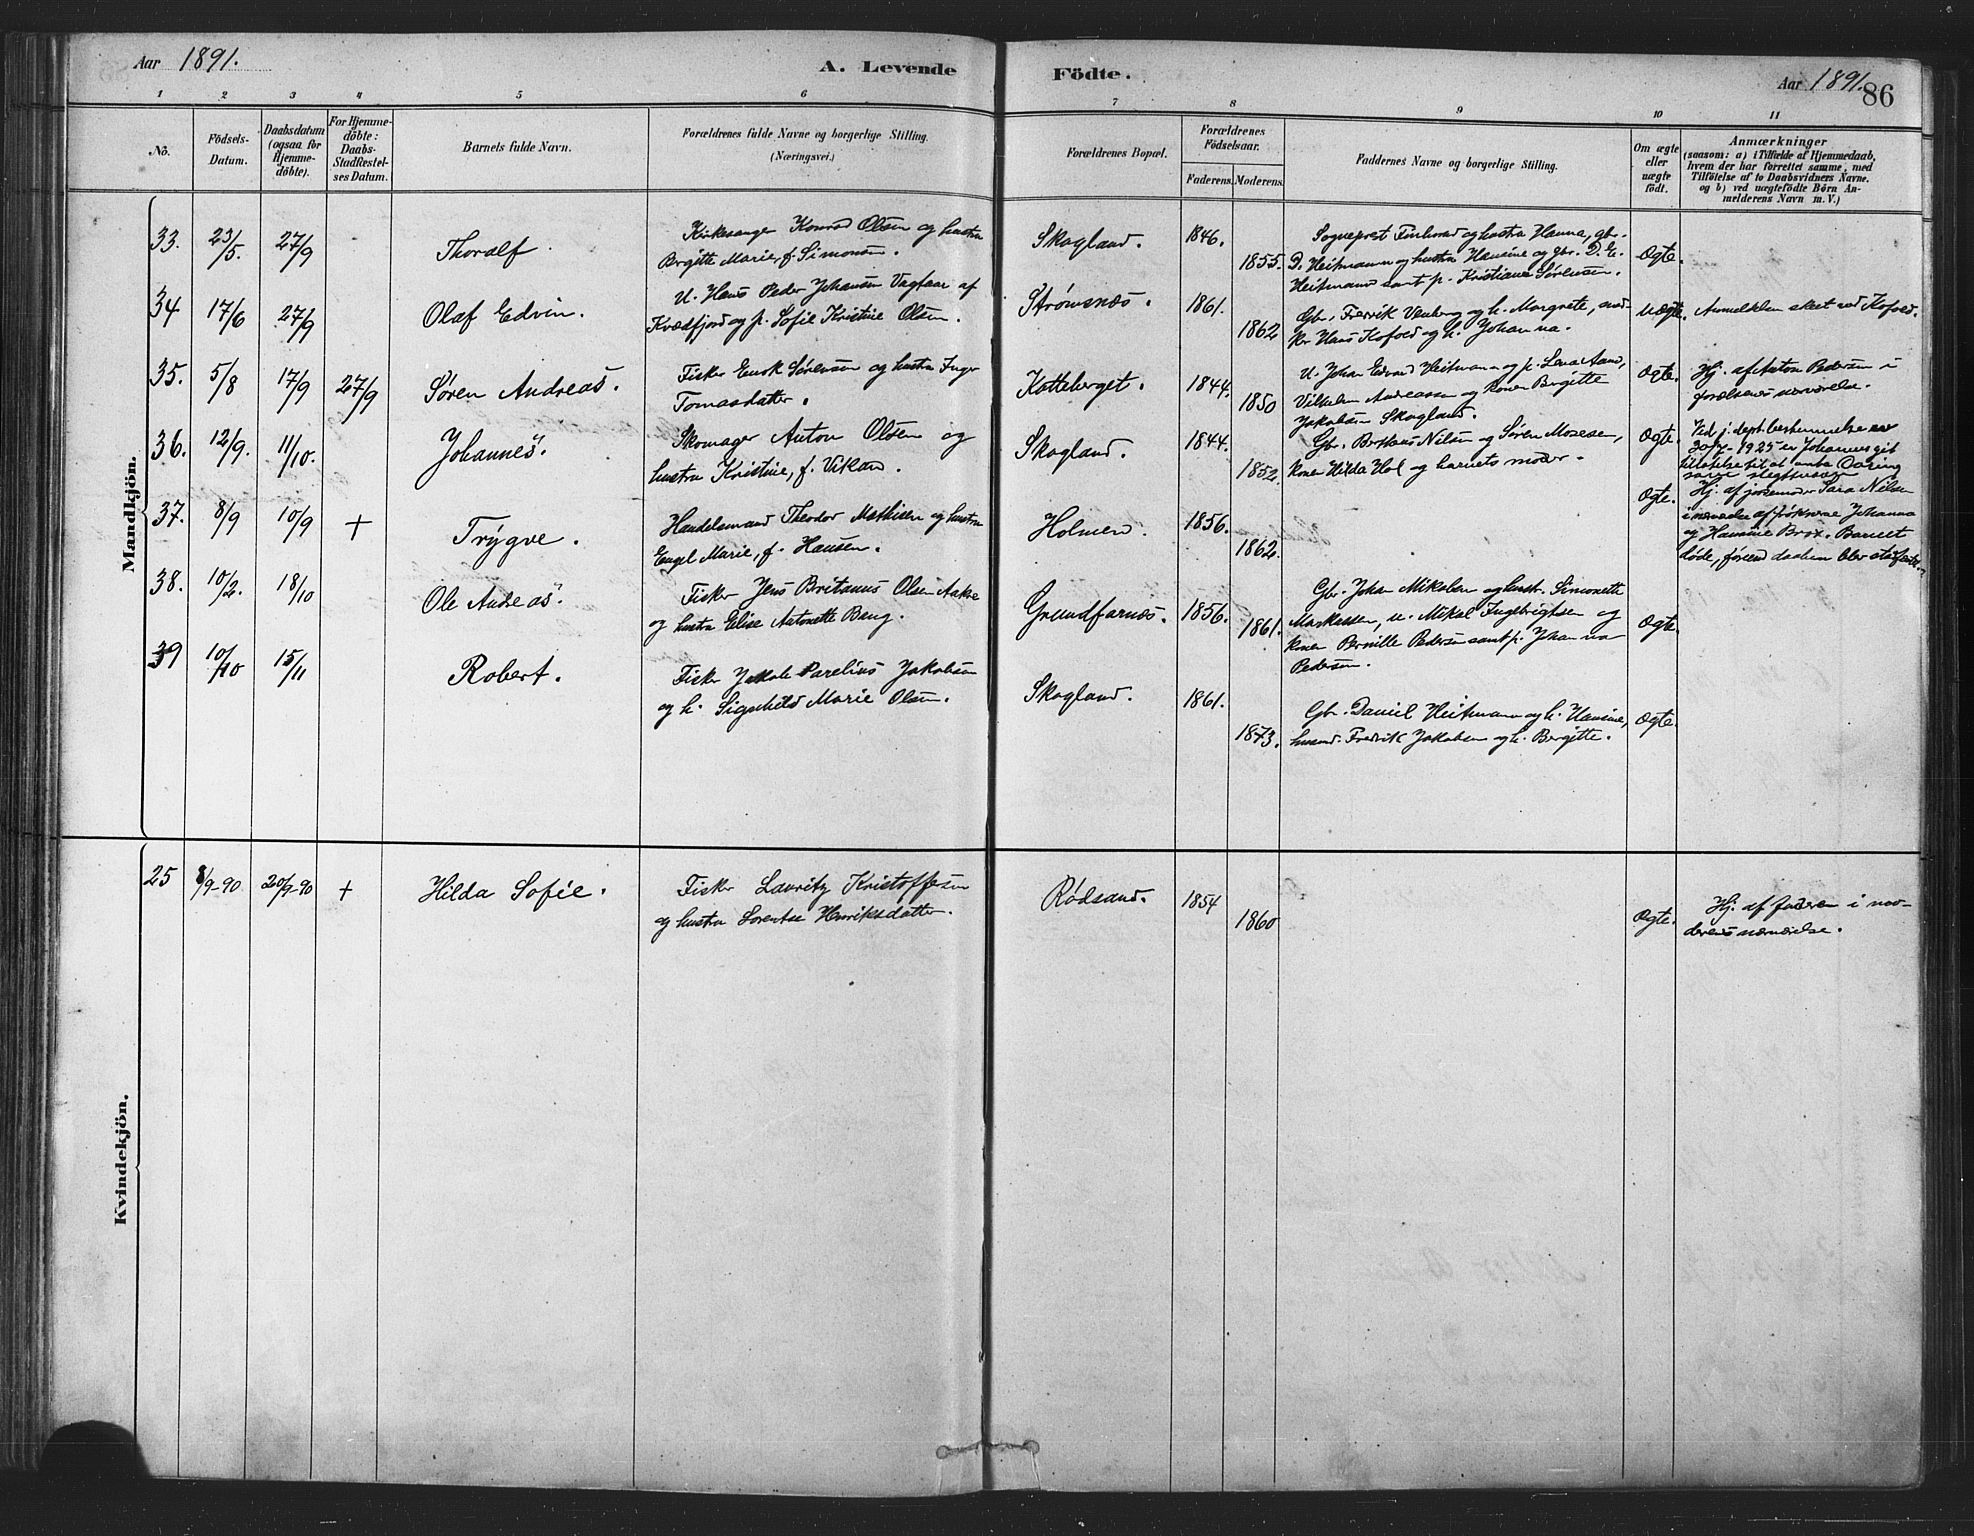 Aar 1891.
A. Levende Födte.
Aar 1891.
86
1 2 3 4 5 6 7 8 9 10 11
No.
Födsels-Datum.
Daabsdatum (ogsaa for Hjemme-döbte).
For Hjemme-döbte: Daabs-Stadfæstel-ses Datum.
Barnets fulde Navn.
Forældrenes fulde Navne og borgerlige Stilling.
(Næringsvei.)
Forældrenes Bopæl.
Forældrenes Födselsaar.
Faderens. Moderens.
Faddernes Navne og borgerlige Stilling.
Om ægte eller uægte födt.
Anmærkninger
(saasom: a) i Tilfælde af Hjemmedaab,
hvem der har forrettet samme, med
Tilföielse af to Daabsvidners Navne.
og b) ved uægtefödte Börn An-
melderens Navn m. V.)
Mandkjön.
33. 23/5. 27/9 Thoralf.
Kirkesanger Konrad Olsen og hustru
Birgitte Marie, f. Simonsen.
Skogland. 1846. 1855.
Sogneprest og hustru Hanna, gbr.
D. Heitmann og hustru Hansine og gbr. D. E.
Heitmann samt p. Kristiane Sørensen.
Ægte.
34 17/6 27/9 Olaf Edvin.
U. Hans Peder Johansen Vagtaar af
Kvædfjord og p. Sofie Kristine Olsen.
Strømsnæs. 1861. 1862
Gbr. og h. Margrete,
Hans Kofoed og h. Johanna.
Uægte. Anmeldelsen skeet ved Kofoed.
35. 5/8 17/9 27/9 Søren Andreas.
Fisker Enok Sørensen og hustru Inger
Tomasdatter.
Kotteberget. 1844. 1850
U. Johan Edvard Heitmann og p. Lena
Vilhelm Andreassen og konen Birgitte
Jakobsen Skogland.
Ægte. Hj. af Anton Pedersen i
forældrenes nærværelse.
36. 12/9. 11/10. Johannes.
Skomager Anton Olsen og
hustru Kristine, f. Vikan.
Skogland. 1844. 1852.
Gbr. Nilsen og Søren Mosesen,
konen Hilda Hol og barnets moder.
Ægte. Ved j. dept. bestemmelse av
30/7-1925 er Johannes git
tilladelse til at anta
som slegtsnavn
37. 8/9 10/9 + Trygve.
Handelsmand Theodor Mathisen og hustru
Engel Marie, f. Hansen.
Holmen. 1856. 1862.
Ægte. Hj. af jordemoder Sara Nilsen
i nærværelse af frøknerne Johanna
og Hansine Brox. Barnet
døde, førend daaben blev stadfæstet.
38. 10/2. 18/10 Ole Andreas.
Fisker Jens Britanus Olsen Aakre
og hustru Elise Antonette Bang.
Grundfarnæs. 1856. 1861.
Gbr. Johan Mikalsen og hustr. Simonette
Markussen, u. Mikal Ingebrigtsen og
konen Pernille Pedersen samt p. Johanna
Pedersen.
Ægte.
39 10/10 15/11 Robert.
Fisker Jakob Parelius Jakobsen
og h. Signhild Marie Olsen.
Skogland. 1861. 1873.
Gbr. Daniel Heitmann og h. Hansine,
husmd. Fredrik Jakobsen og h. Bergitte.
Ægte.
Kvindekjön.
25 8/9-90 20/9-90 + Hilda Sofie.
Fisker Lauritz Kristoffersen
og hustru Lorentse Henriksdatter.
Rødsand. 1854 1860
Ægte. Hj. af faderen i moderens nærværelse.